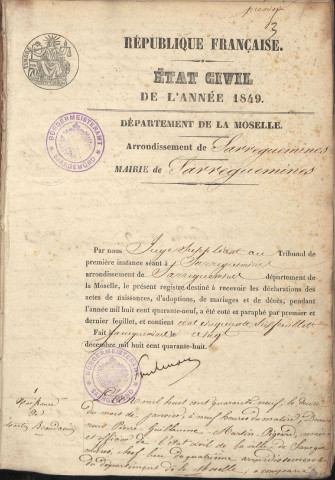 premier
3
RÉPUBLIQUE FRANÇAISE.
ÉTAT CIVIL
DE L'ANNÉE 1849.
DÉPARTEMENT DE LA MOSELLE.
Arrondissement de Sarreguemines
MAIRIE de Sarreguemines
BURGERMEISTERAMT
SAARGEMÜND
Par nous Juge suppléant au Tribunal de
première instance séant à Sarreguemines
arrondissement de Sarreguemines département de
la Moselle, le présent registre destiné à recevoir les déclarations des
actes de naissances, d'adoptions, de mariages et de décès, pendant
l'année mil huit cent quarante-neuf, a été coté et paraphé par premier et
dernier feuillet, et contient cent cinquante feuillets
Fait à Sarreguemines le vingt
décembre mil huit cent quarante-huit.
BURGERMEISTERAMT
Naissance
de
L'an mil huit cent quarante neuf, le deux
du mois de janvier, à neuf heures du matin,
nous Pierre Guillaume Martin
et officier de l'état civil de la ville de Sarregue
mines, chef lieu du quatrième arrondissement
du département de la Moselle, a comparu